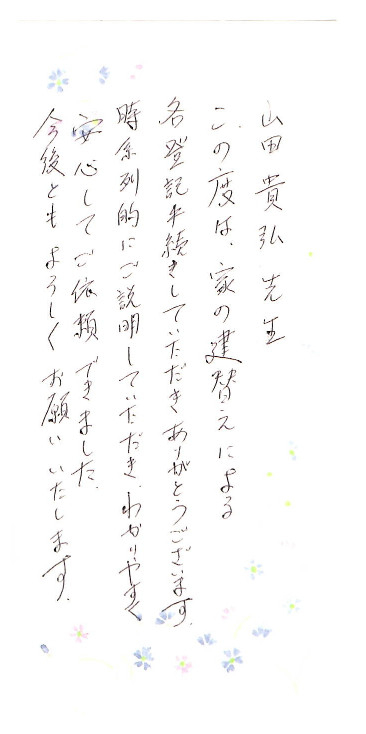 山田貴弘先生
この度は、家の建替えによる
各登記手続きしていただきありがとうございます。
時系列的にご説明していただき、わかりやすく
安心してご依頼できました。
今後ともよろしくお願いいたします。